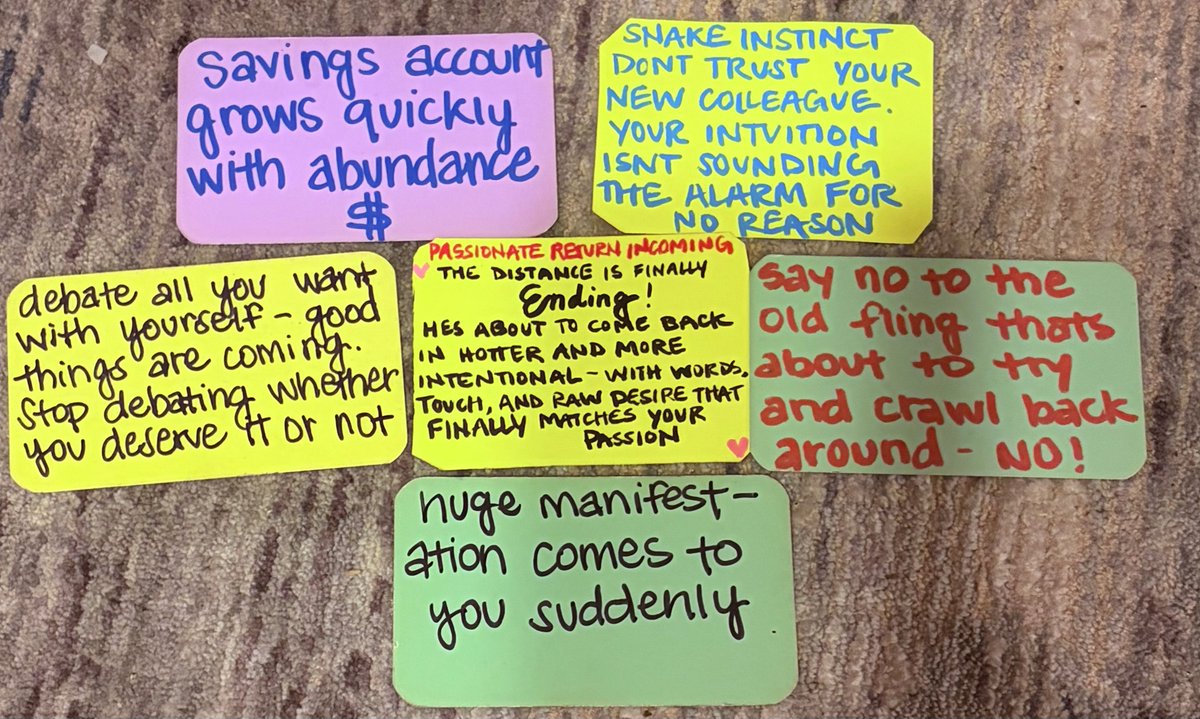 savings account
grows quickly
with abundance
$
SNAKE INSTINCT
DONT TRUST YOUR
NEW COLLEAGUE.
YOUR INTUITION
ISNT SOUNDING
THE ALARM FOR
NO REASON
debate all you want
with yourself - good
things are coming.
Stop debating whether
you deserve it or not
PASSIONATE RETURN INCOMING
THE DISTANCE IS FINALLY
Ending!
HES ABOUT TO COME BACK
IN HOTTER AND MORE
INTENTIONAL - WITH WORDS,
TOUCH, AND RAW DESIRE THAT
FINALLY MATCHES YOUR
PASSION
say no to the
old fling thats
about to try
and crawl back
around - NO!
huge manifest-
ation comes to
you suddenly